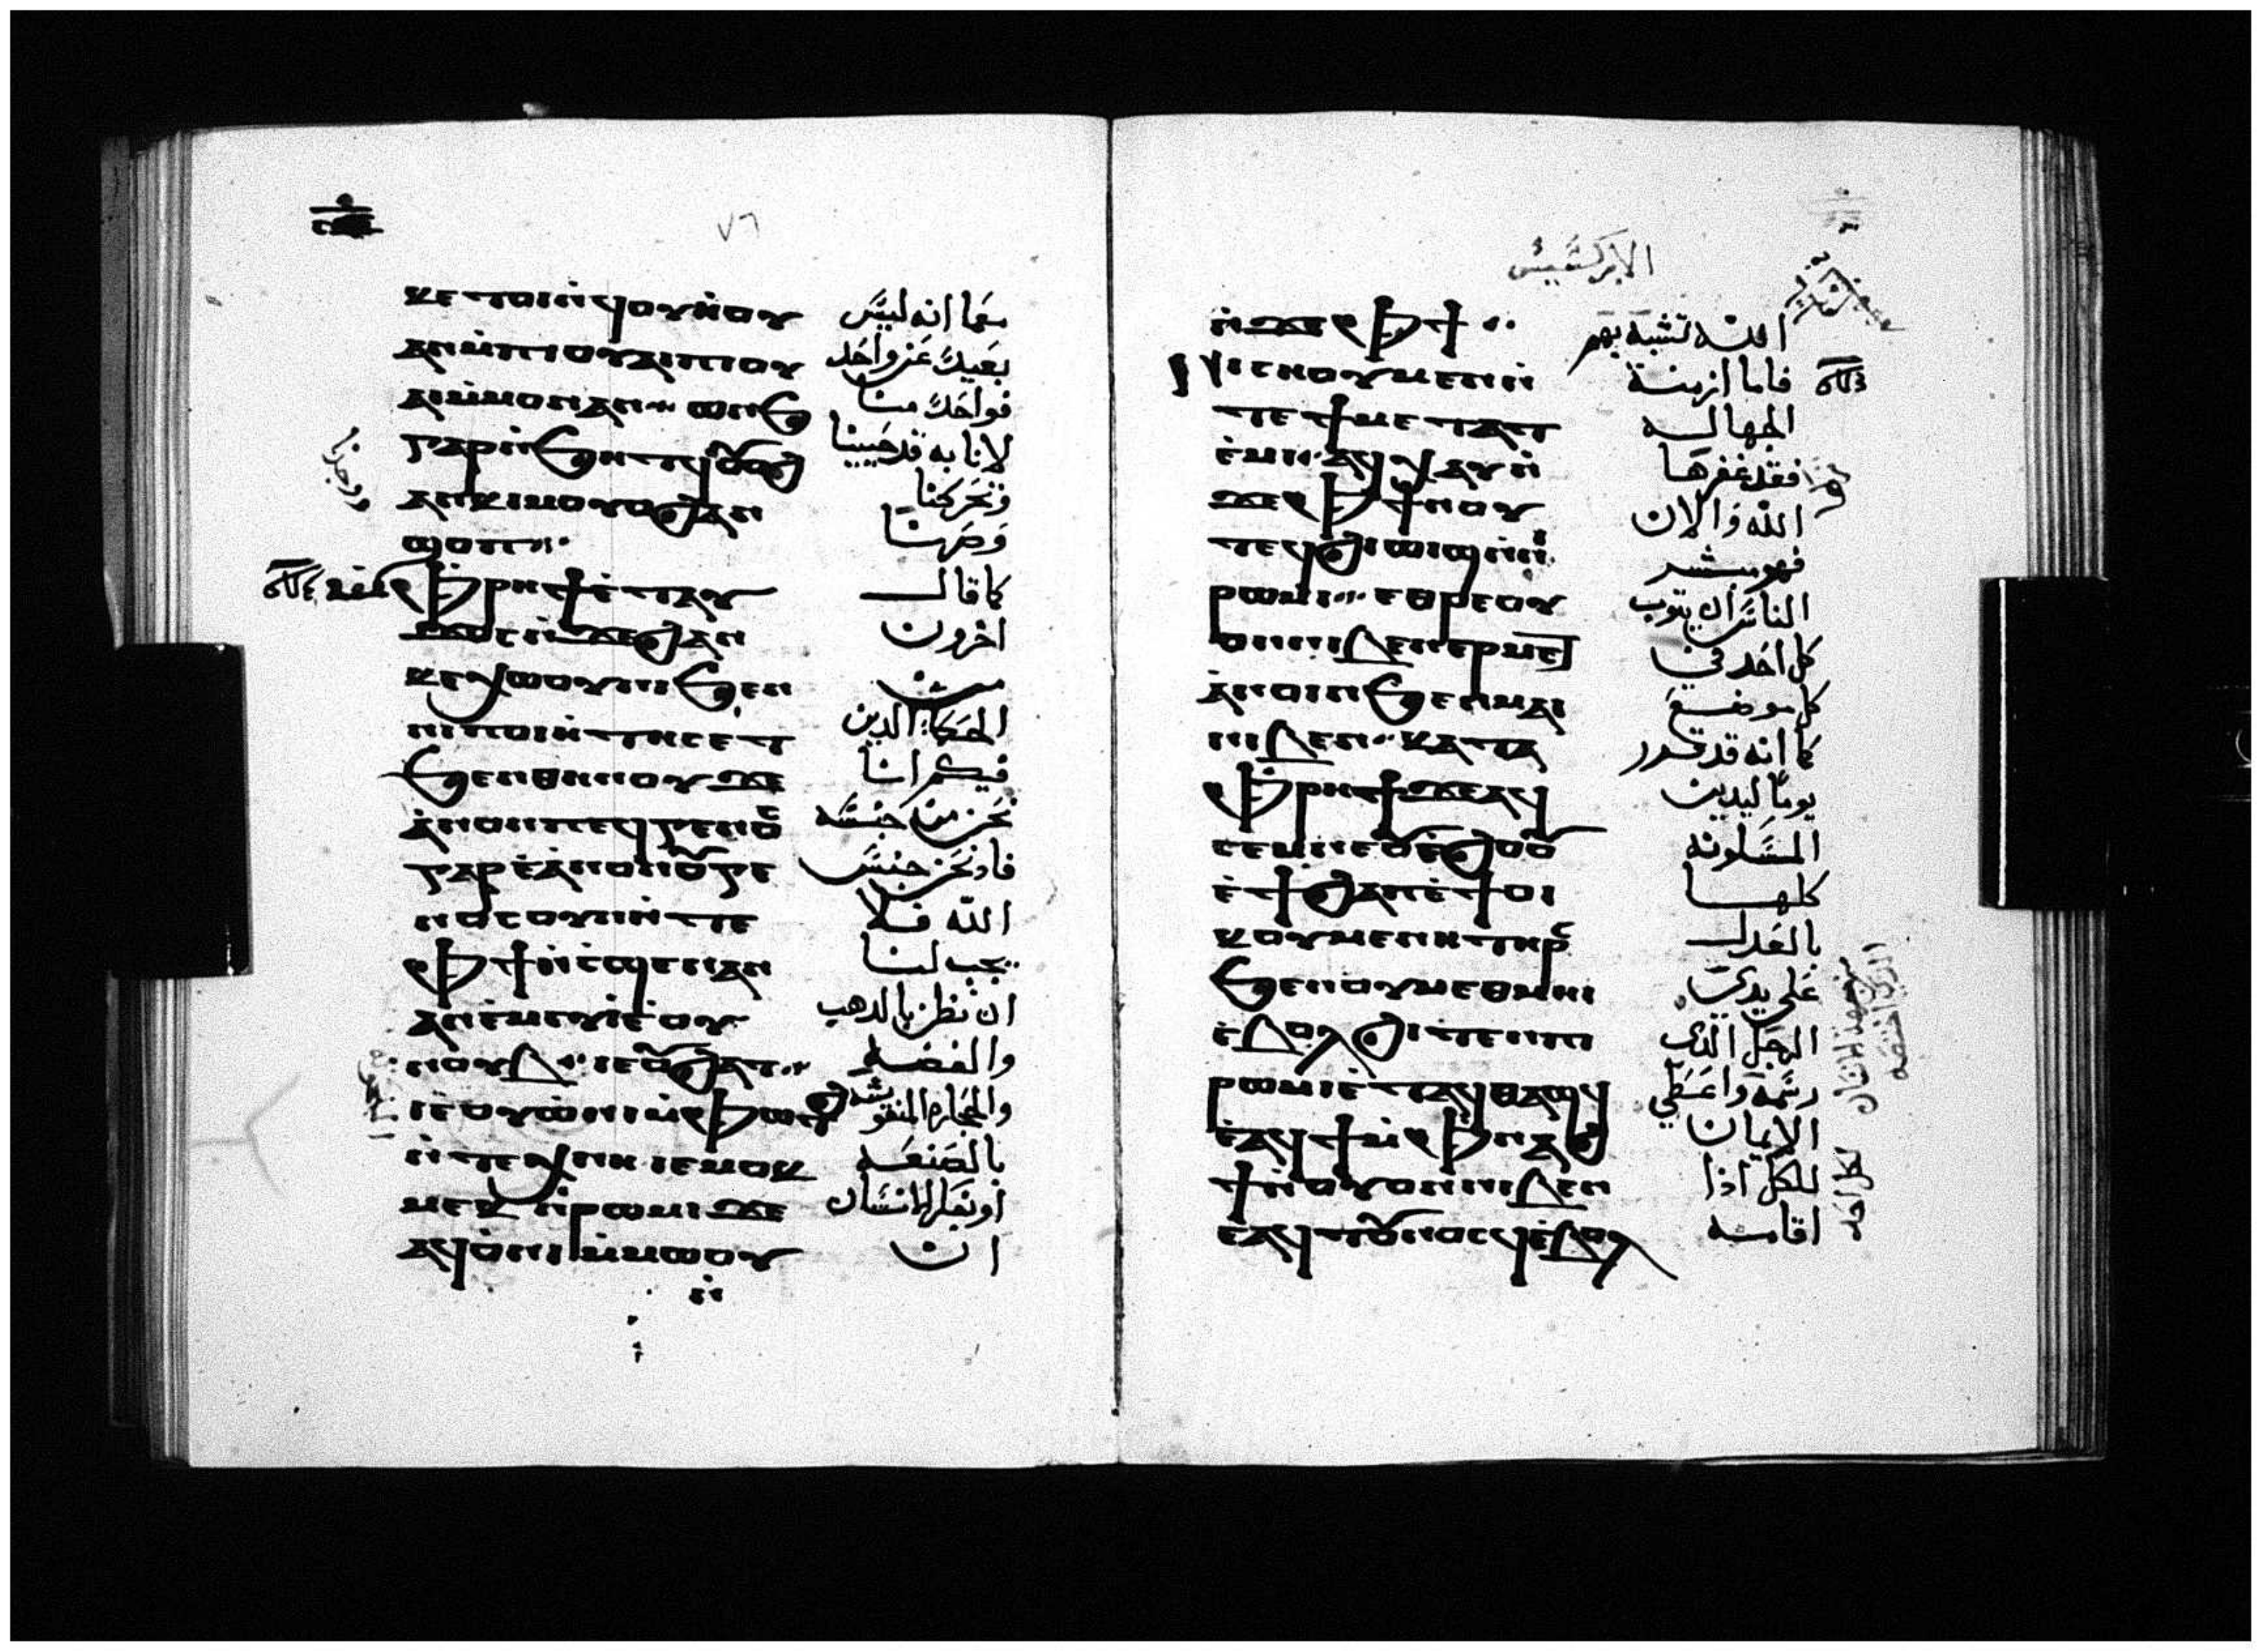 ٧٦
ⲕⲉⲧⲟⲓⲛ̀ϥⲟⲩⲏ̀ⲟⲩ
ⲁⲛⲙ̀ⲡⲓⲟⲩⲁⲓⲡⲓⲟⲩ
ⲁⲓⲙ̀ⲙⲟⲛⲁⲛ ⲱⲛϧ
ⲅⲁⲣⲛ̀ϧⲏⲧϥⲟⲩⲟϩ
ⲁⲛⲕⲓⲙⲟⲩⲟϩⲁⲛ
ϣⲟⲡ
ⲙ̀ⲫⲣⲏϯⲉ̀ⲧⲁⲩ
ϫⲟⲥⲛ̀ϫⲉϩⲁⲛ
ⲕⲉⲭⲱⲟⲩⲛⲓϧⲉⲛ
ⲛⲓⲡⲟⲓⲏ̀ⲧⲏⲥⲉⲧ
ϧⲉⲛⲑⲏⲛⲟⲩϫⲉ
ⲁ̀ⲛⲟⲛⲡⲉϥⲅⲉⲛⲟⲥ
ⲅⲁⲣⲉ̀ⲁ̀ⲛⲟⲛⲟⲩⲅⲉ
ⲛⲟⲥⲟⲩⲛⲛ̀ⲧⲉ
ⲫϯⲛ̀ⲥϣⲉⲛⲁⲛ
ⲁⲛⲉ̀ⲙⲉⲩⲓ̀ⲉ̀ⲟⲩ
ⲛⲟⲩⲃ ⲓⲉⲟⲩϩⲁⲧ
ⲓⲉⲟⲩⲱ̀ⲛⲓⲙ̀ⲫⲱⲧϩ
ⲛ̀ⲧⲉⲭⲛⲏ ⲓⲉⲙⲟⲕ
ⲙⲉⲕⲛ̀ⲣⲱⲙⲓϫⲉ
ⲁϥⲟ̀ⲛⲓⲙ̀ⲙⲱⲟⲩ
ⲛ̀
معما انه ليس
بعيد عن واحد
فواحد منا
لانا به قد حيينا
وتحركنا
وصرنا
كما قال
اخرون
من
الحكماء الدين
فيكم اننا
نحن من جنسه
فاد نحن جنس
الله فلا
يجب لنا
ان نظن بالدهب
والفضه
والحجاره المنقوشه
بالصنعه
او بفكر الانسان
ان
الابركسيس
ⲛ̀ϫⲉⲫϯ
ⲛⲓⲥⲏⲟⲩⲙⲉⲛⲛ̀
ⲧⲉϯⲙⲉⲧⲁⲧ
ⲉ̀ⲙⲓ ⲁϥⲭⲁⲩⲛ̀
ϫⲉⲫϯϯⲛⲟⲩ
ⲧⲉϥϩⲓⲱⲓϣⲛ̀ⲛⲓ
ⲣⲱⲙⲓ ⲉⲑⲣⲉⲟⲩ
ⲟⲛⲛⲓⲃⲉⲛⲉⲣⲙⲉⲧ
ⲁ̀ⲛⲟⲓⲛϧⲉⲛⲙⲁⲓ
ⲛⲓⲃⲉⲛ ⲕⲁⲧⲁ
ⲫⲣⲏϯϫⲉⲁϥ
ⲥⲉⲙⲛⲉⲟⲩⲉ̀ϩⲟⲟⲩ
ⲉ̀ϯϩⲁⲡⲉ̀ϯⲟⲓ
ⲕⲟⲩⲙⲉⲛⲏⲧⲏⲣⲥ
ϧⲉⲛⲟⲩⲙⲉⲑⲙⲏⲓ
ⲉ̀ⲃⲟⲗϩⲓⲧⲉⲛⲡⲓ
ⲣⲱⲙⲓⲉ̀ⲧⲁϥⲑⲁϣϥ
ⲉ̀ⲁϥϯⲙ̀ⲫⲛⲁϩ
ϯⲛ̀ⲟⲩⲟⲛⲛⲓⲃⲉⲛ
ⲉ̀ⲁϥⲧⲟⲩⲛⲟⲥϥⲉ̀ⲃⲟⲗ
الله تشبه بهم
فاما ازمنة
الجهاله
فقد غفرها
الله والان
فهو يبشر
الناس ان يتوب
كل احد في
كل موضع
كما انه قد حدد
يوما ليدين
المسكونه
كلها
بالعدل
على يدي
الرجل الدى
رسمه واعطي
الايمان
للكل اذا
اقامه